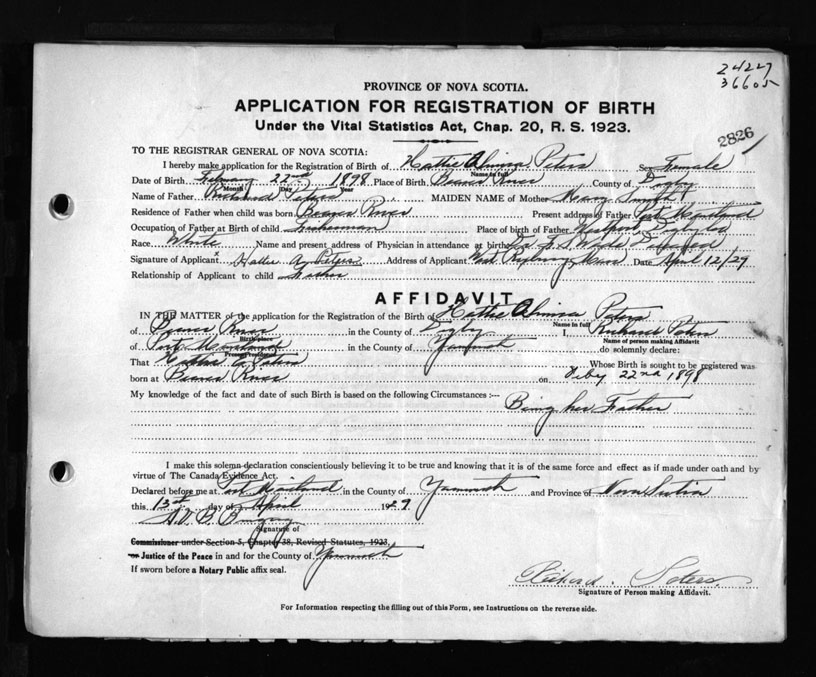 24227
36605
PROVINCE OF NOVA SCOTIA.
APPLICATION FOR REGISTRATION OF BIRTH
Under the Vital Statistics Act, Chap. 20, R. S. 1923.
2826
TO THE REGISTRAR GENERAL OF NOVA SCOTIA:
I hereby make application for the Registration of Birth of Hattie Almira Peters Sex Female
Name in full
Date of Birth February 22nd 1898 Place of Birth Bears River County of Digby
(Month) Day Year
Name of Father Richard Peters MAIDEN NAME of Mother Mary
Residence of Father when child was born Bears River Present address of Father Port Maitland
Occupation of Father at Birth of child Fisherman Place of birth of Father Westport Digby Co
Race White Name and present address of Physician in attendance at birth Dr
Signature of Applicant x Hattie A. Peters Address of Applicant Mass Date April 12/29
Relationship of Applicant to child
AFFIDAVIT
IN THE MATTER of the application for the Registration of the Birth of Hattie Almira Peters
Name in full
of Bears River in the County of Digby I, Richard Peters
Birth-place Name of person making Affidavit
of Port Maitland in the County of Yarmouth do solemnly declare:
Present residence
That Hattie A Peters Whose Birth is sought to be registered was
born at Bears River on Feby 22nd 1898
My knowledge of the fact and date of such Birth is based on the following Circumstances :— Being her Father
I make this solemn declaration conscientiously believing it to be true and knowing that it is of the same force and effect as if made under oath and by
virtue of The Canada Evidence Act.
Declared before me at Port Maitland in the County of Yarmouth and Province of Nova Scotia
this 13st day of April 1929
Signature of
Commissioner under Section 3, Chapter 38, Revised Statutes, 1923,
or Justice of the Peace in and for the County of Yarmouth
If sworn before a Notary Public affix seal.
Richard Peters
Signature of Person making Affidavit.
For Information respecting the filling out of this Form, see Instructions on the reverse side.